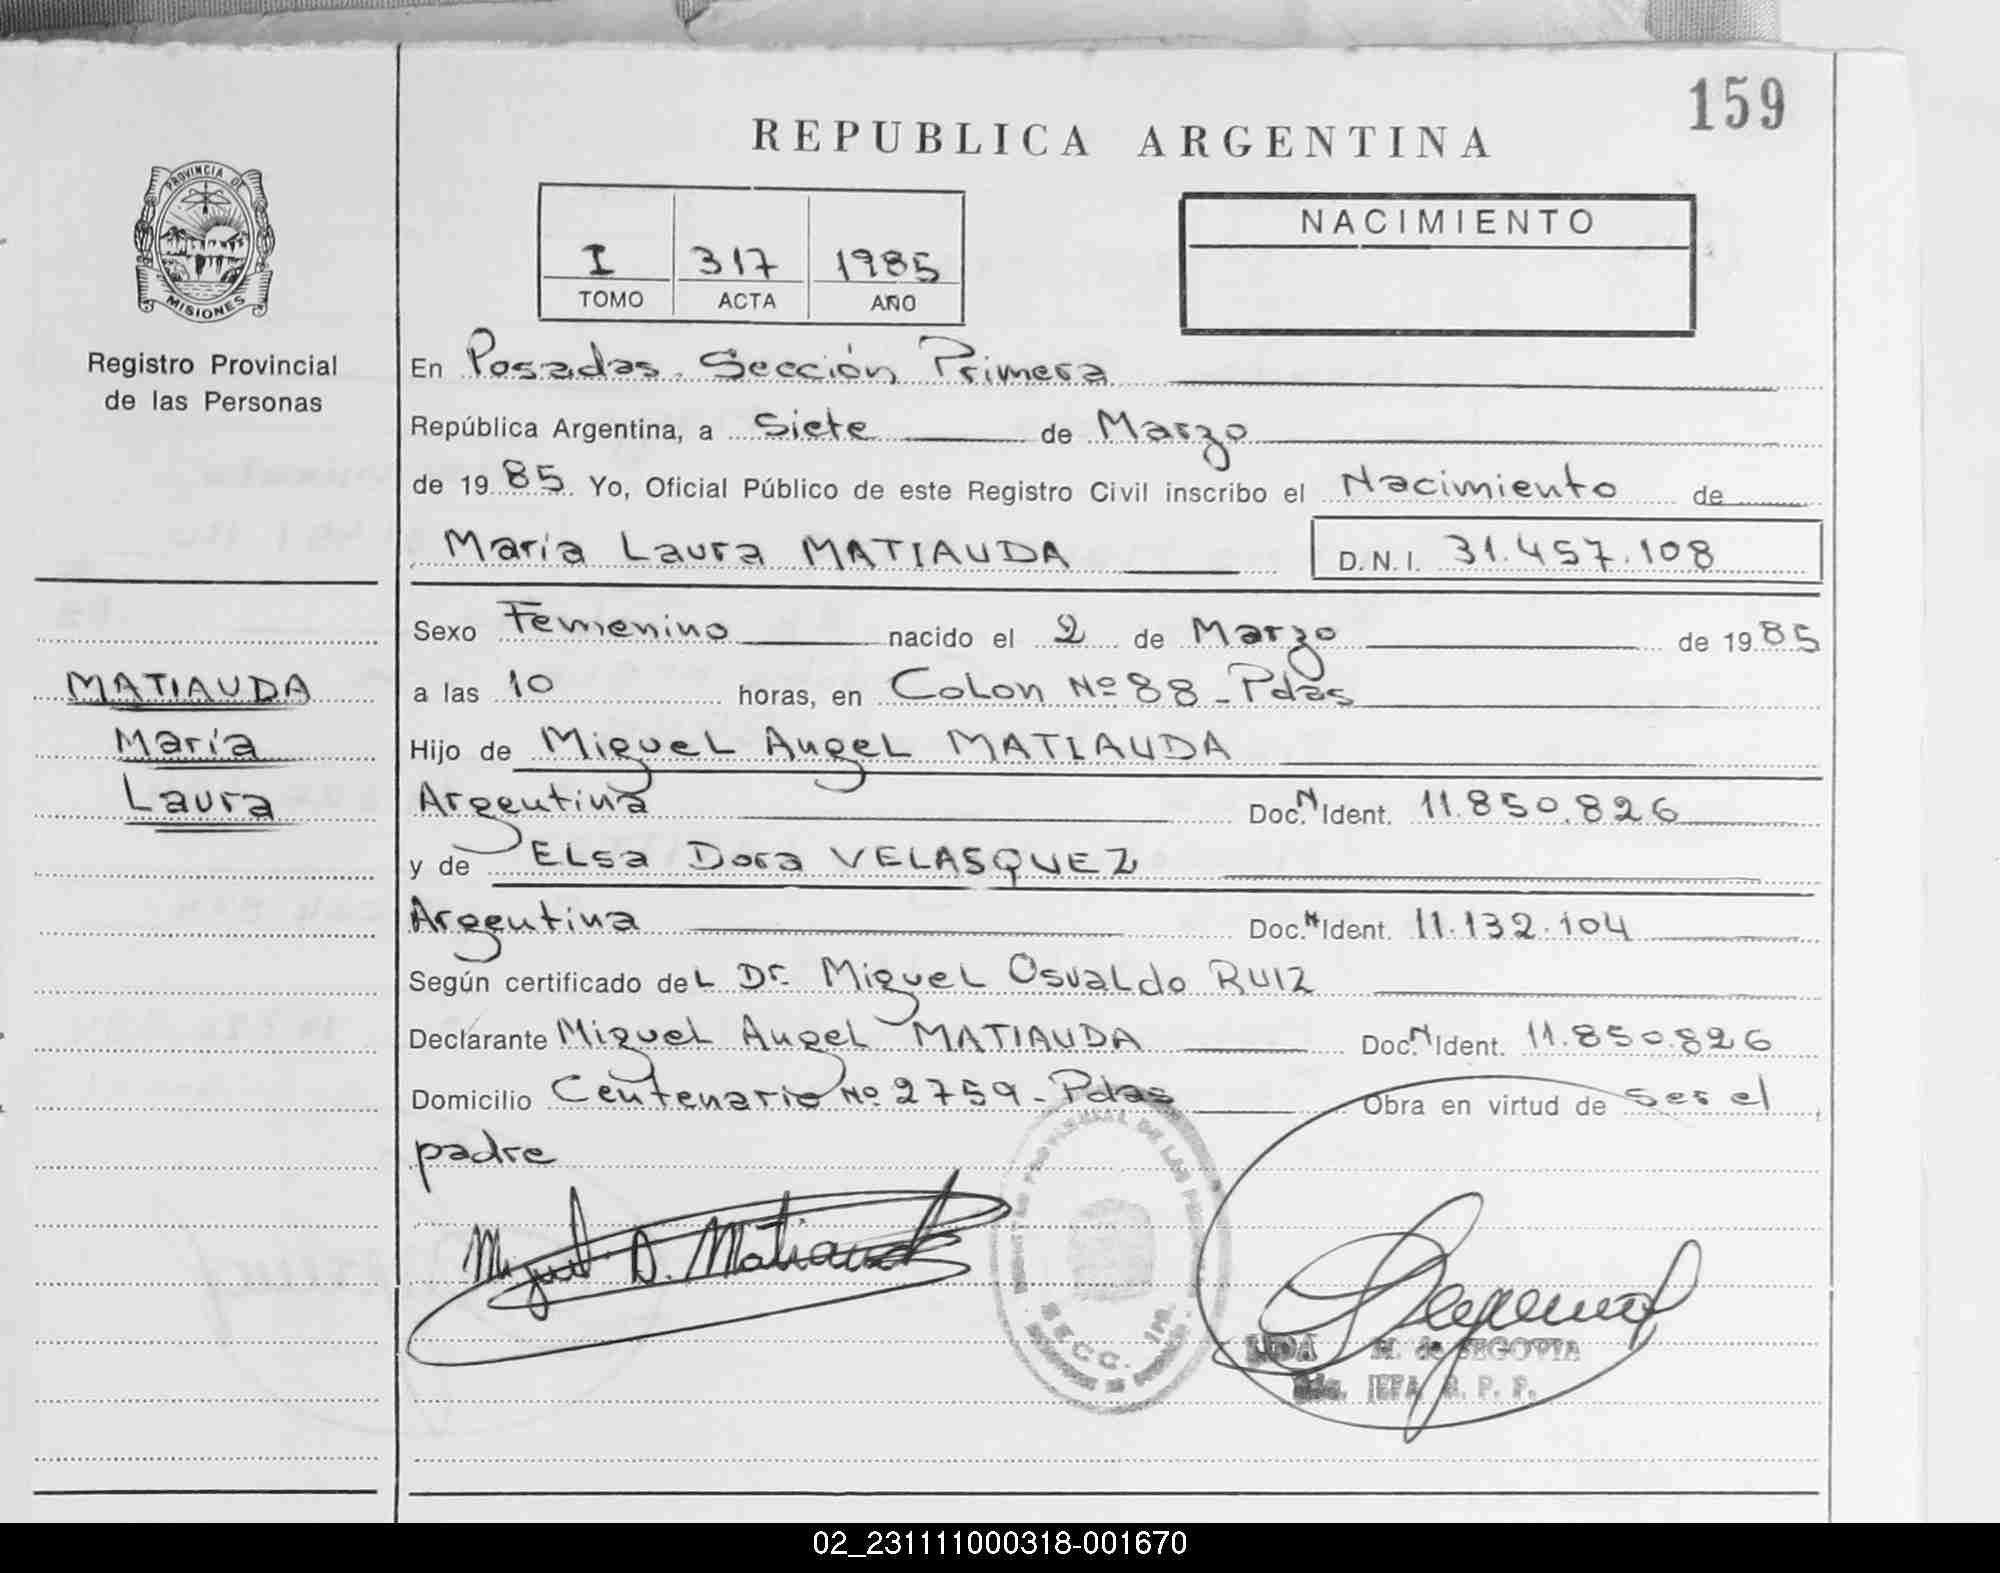 159
REPUBLICA ARGENTINA
PROVINCIA DE
MISIONES
Registro Provincial
de las Personas
I 317 1985
TOMO ACTA AÑO
NACIMIENTO
En Posadas. Sección Primera
República Argentina, a Siete de Marzo
de 1985. Yo, Oficial Público de este Registro Civil inscribo el Nacimiento de
María Laura MATIAUDA D.N.I. 31.457.108
Sexo Femenino nacido el 2 de Marzo de 1985
MATIAUDA
María
Laura
a las 10 horas, en Colon Nº 88 - Pdas
Hijo de Miguel Angel MATIAUDA
Argentina Doc. N Ident. 11.850.826
y de Elsa Dora VELASQUEZ
Argentina Doc. N Ident. 11.132.104
Según certificado del Dr. Miguel Osvaldo RUIZ
Declarante Miguel Angel MATIAUDA Doc. N Ident. 11.850.826
Domicilio Centenario Nº 2759 - Pdas Obra en virtud de ser el
padre
Miguel A. Matiauda
PROVINCIAL DE LAS
SECC. 1ª
LIDA M. de SEGOVIA
JEFA R. P. P.
02_231111000318-001670